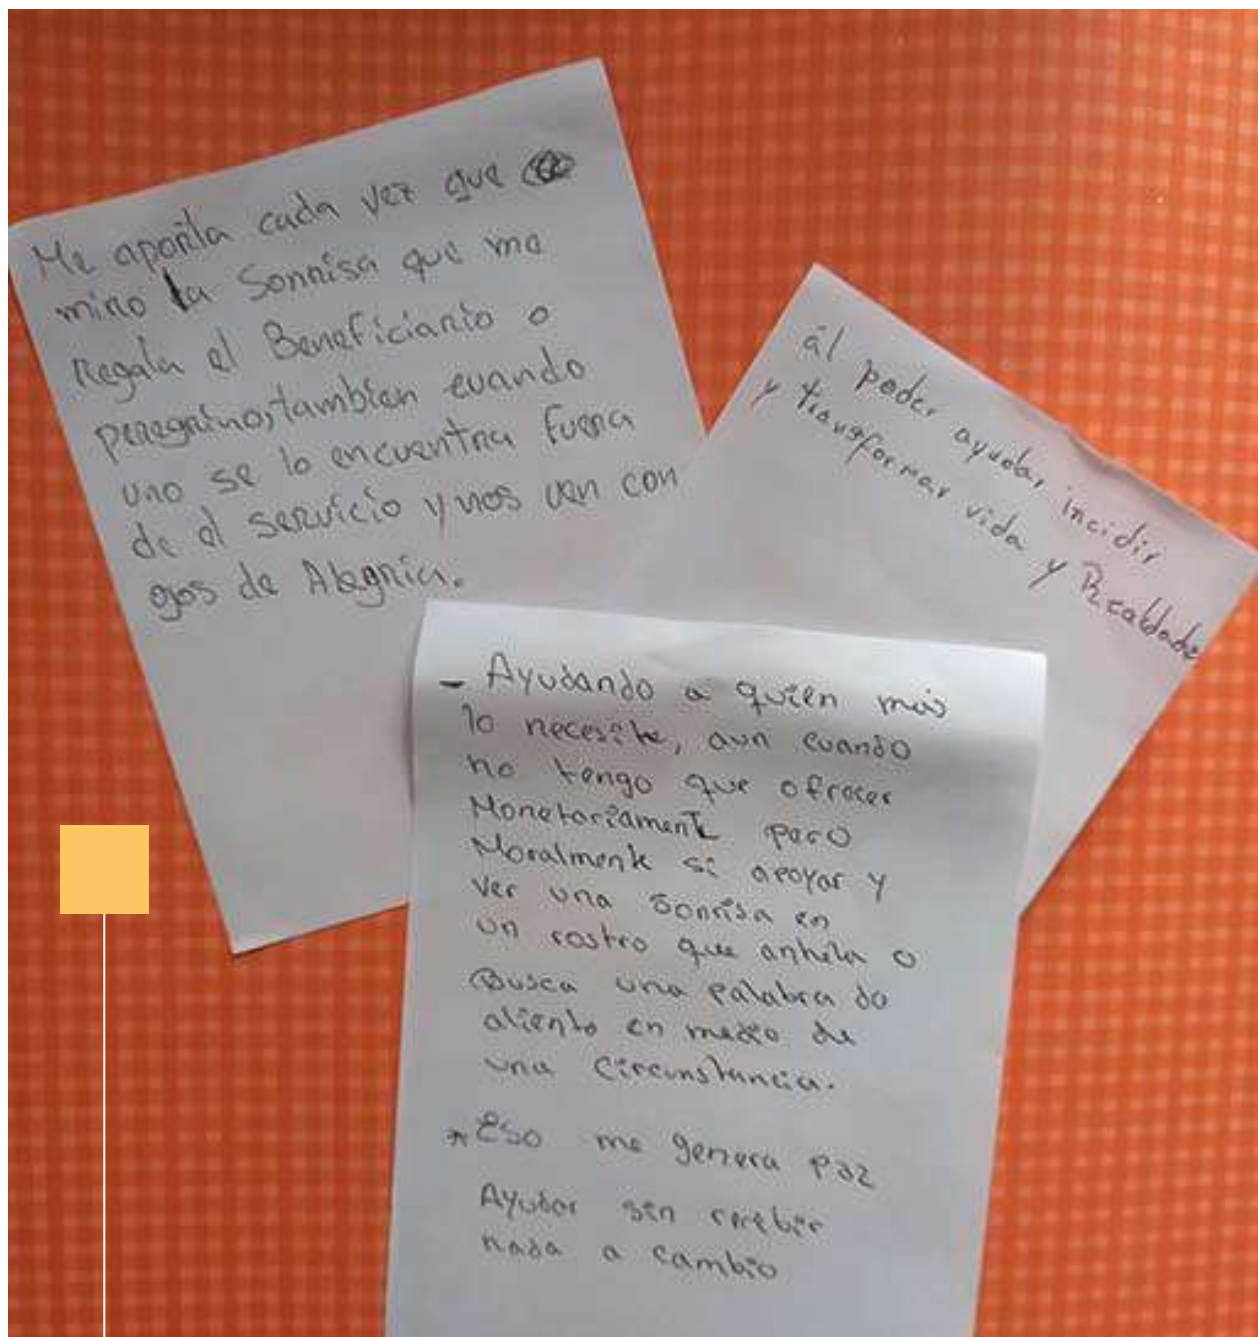 Me aporta cada vez que
miro la Sonrisa que me
Regala el Beneficiario o
peregrino, tambien cuando
uno se lo encuentra fuera
de el servicio y nos ven con
ojos de Alegria.
ál poder ayudar, incidir
y transformar vida y Realidade
- Ayudando a quien más
lo necesite, aun cuando
no tengo que ofrecer
Monetariamente pero
Moralmente si apoyar y
ver una sonrisa en
un rostro que anhela o
Busca una palabra de
aliento en medio de
una circunstancia.
* Eso me genera paz
Ayudar sin recebir
nada a cambio